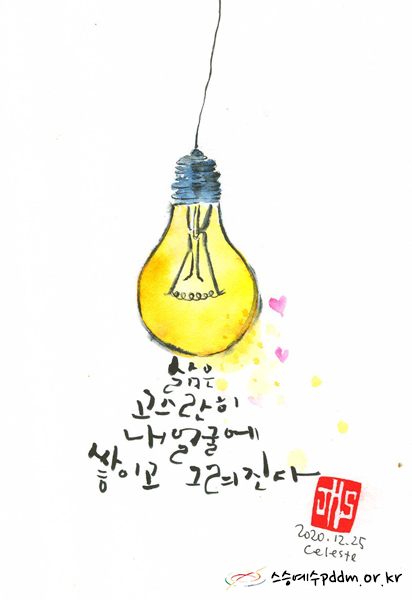 삶은
고스란히
내 얼굴에
쌓이고 그려진다
JHS
2020.12.25
Celeste
스승예수pddm.or.kr